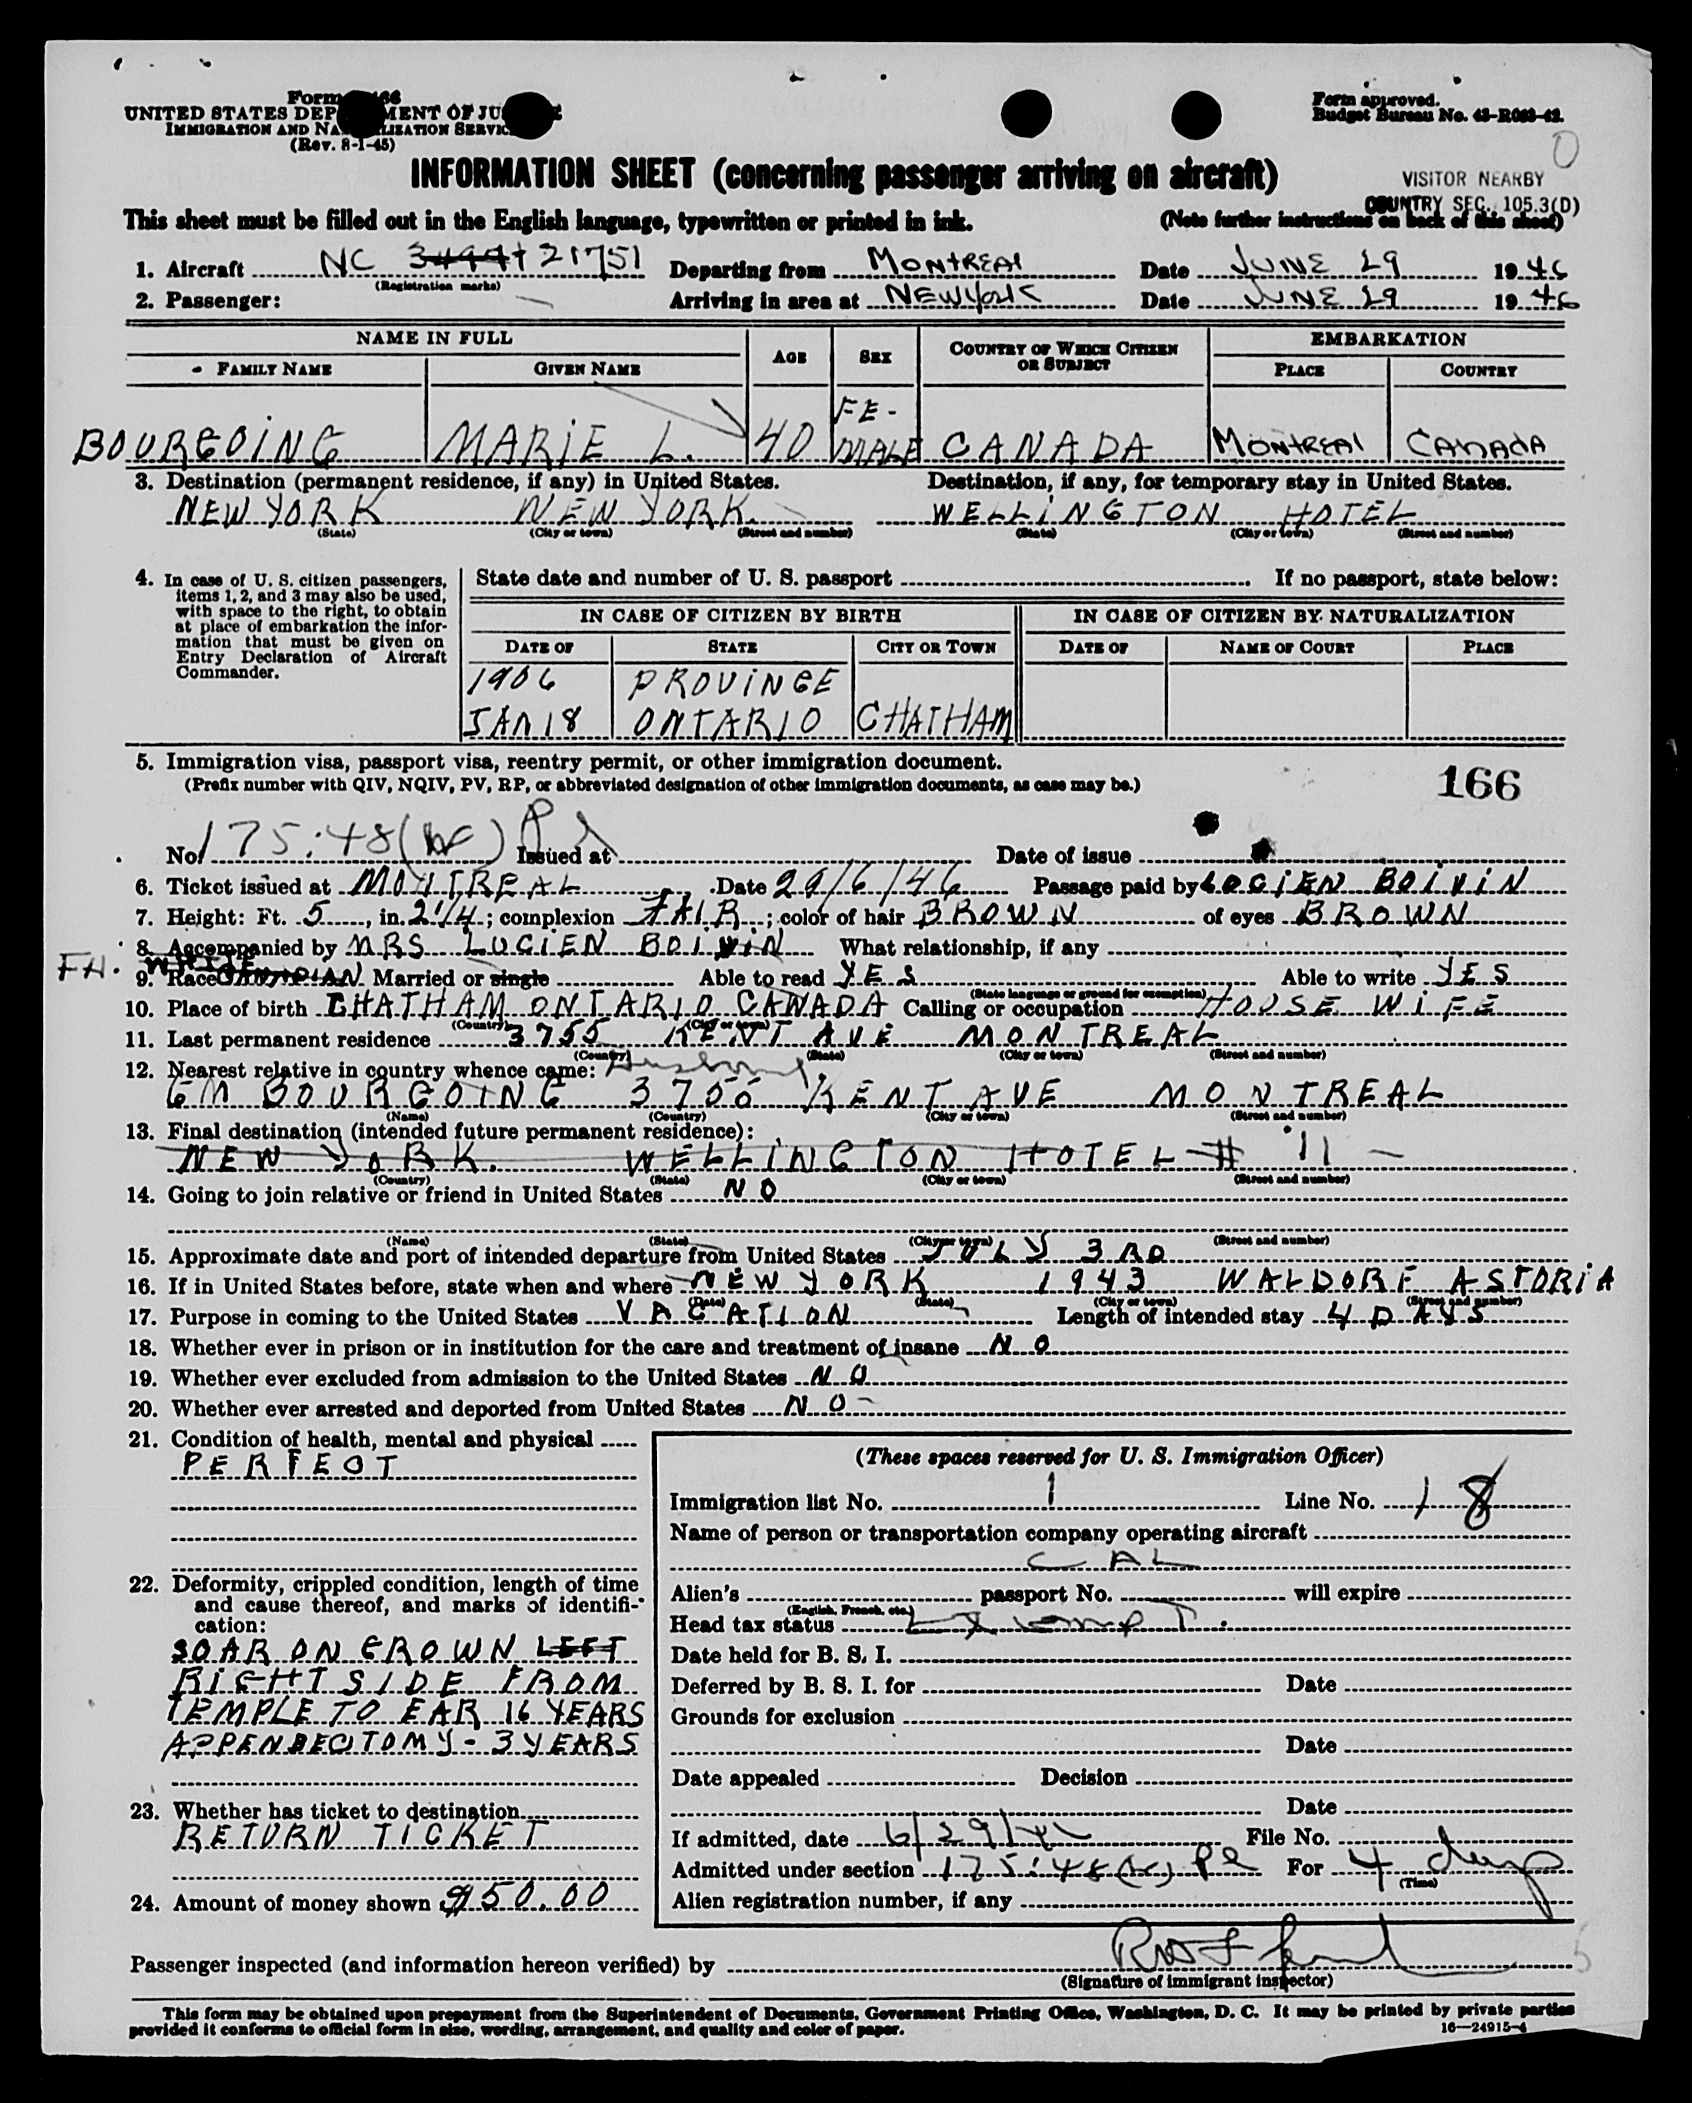 UNITED STATES DEP MENT OF JU E
IMMIGRATION AND NA LIZATION SERVIC
(Rev. 8-1-45)
Form approved.
Budget Bureau No.
INFORMATION SHEET (concerning passenger arriving on aircraft)
VISITOR NEARBY
COUNTRY SEC. 105.3(D)
This sheet must be filled out in the English language, typewritten or printed in ink. (Note further instructions on back of this sheet)
1. Aircraft NC 21751 Departing from MONTREAL Date JUNE 29 1946
(Registration marks)
2. Passenger: Arriving in area at NEW YORK Date JUNE 29 1946
NAME IN FULL AGE SEX COUNTRY OF WHICH CITIZEN OR SUBJECT EMBARKATION
FAMILY NAME GIVEN NAME PLACE COUNTRY
BOURGOING MARIE L. 40 FE-MALE CANADA MONTREAL CANADA
3. Destination (permanent residence, if any) in United States. Destination, if any, for temporary stay in United States.
NEW YORK NEW YORK. WELLINGTON HOTEL
(State) (City or town) (Street and number) (State) (City or town) (Street and number)
4. In case of U. S. citizen passengers, items 1, 2, and 3 may also be used, with space to the right, to obtain at place of embarkation the information that must be given on Entry Declaration of Aircraft Commander.
State date and number of U. S. passport If no passport, state below:
IN CASE OF CITIZEN BY BIRTH IN CASE OF CITIZEN BY NATURALIZATION
DATE OF STATE CITY OR TOWN DATE OF NAME OF COURT PLACE
1906 PROVINCE
JAN 18 ONTARIO CHATHAM
5. Immigration visa, passport visa, reentry permit, or other immigration document.
(Prefix number with QIV, NQIV, PV, RP, or abbreviated designation of other immigration documents, as case may be.)
166
No. 175:48 Issued at Date of issue
6. Ticket issued at MONTREAL Date 29/6/46 Passage paid by LUCIEN BOIVIN
7. Height: Ft. 5, in. 2 1/4; complexion FAIR; color of hair BROWN of eyes BROWN
8. Accompanied by MRS LUCIEN BOIVIN What relationship, if any
FH. WHITE
9. Race CANADIAN Married or single Able to read YES Able to write YES
(State language or ground for exemption)
10. Place of birth CHATHAM ONTARIO CANADA Calling or occupation HOUSE WIFE
(Country) (City or town)
11. Last permanent residence 3755 KENT AVE MONTREAL
(Country) (State) (City or town) (Street and number)
12. Nearest relative in country whence came: Husband
GM BOURGOING 3755 KENT AVE MONTREAL
(Name) (Country) (City or town) (Street and number)
13. Final destination (intended future permanent residence):
NEW YORK. WELLINGTON HOTEL # 11 -
(Country) (State) (City or town) (Street and number)
14. Going to join relative or friend in United States NO
(Name) (State) (City or town) (Street and number)
15. Approximate date and port of intended departure from United States JULY 3RD
16. If in United States before, state when and where NEW YORK 1943 WALDORF ASTORIA
(Date) (State) (City or town) (Street and number)
17. Purpose in coming to the United States VACATION Length of intended stay 4 DAYS
18. Whether ever in prison or in institution for the care and treatment of insane NO
19. Whether ever excluded from admission to the United States NO
20. Whether ever arrested and deported from United States NO
21. Condition of health, mental and physical
PERFECT
22. Deformity, crippled condition, length of time and cause thereof, and marks of identification:
SCAR ON CROWN LEFT
RIGHT SIDE FROM
TEMPLE TO EAR 16 YEARS
APPENDECTOMY - 3 YEARS
23. Whether has ticket to destination
RETURN TICKET
24. Amount of money shown $50.00
(These spaces reserved for U. S. Immigration Officer)
Immigration list No. 1 Line No. 18
Name of person or transportation company operating aircraft
CAL
Alien's passport No. will expire
(English, French, etc.)
Head tax status Exempt.
Date held for B. S. I.
Deferred by B. S. I. for Date
Grounds for exclusion
Date
Date appealed Decision
Date
If admitted, date 6/29/46 File No.
Admitted under section 175:48 For 4 days
(Time)
Alien registration number, if any
Passenger inspected (and information hereon verified) by
(Signature of immigrant inspector)
This form may be obtained upon prepayment from the Superintendent of Documents, Government Printing Office, Washington, D. C. It may be printed by private parties
provided it conforms to official form in size, wording, arrangement, and quality and color of paper.
16—24915-4